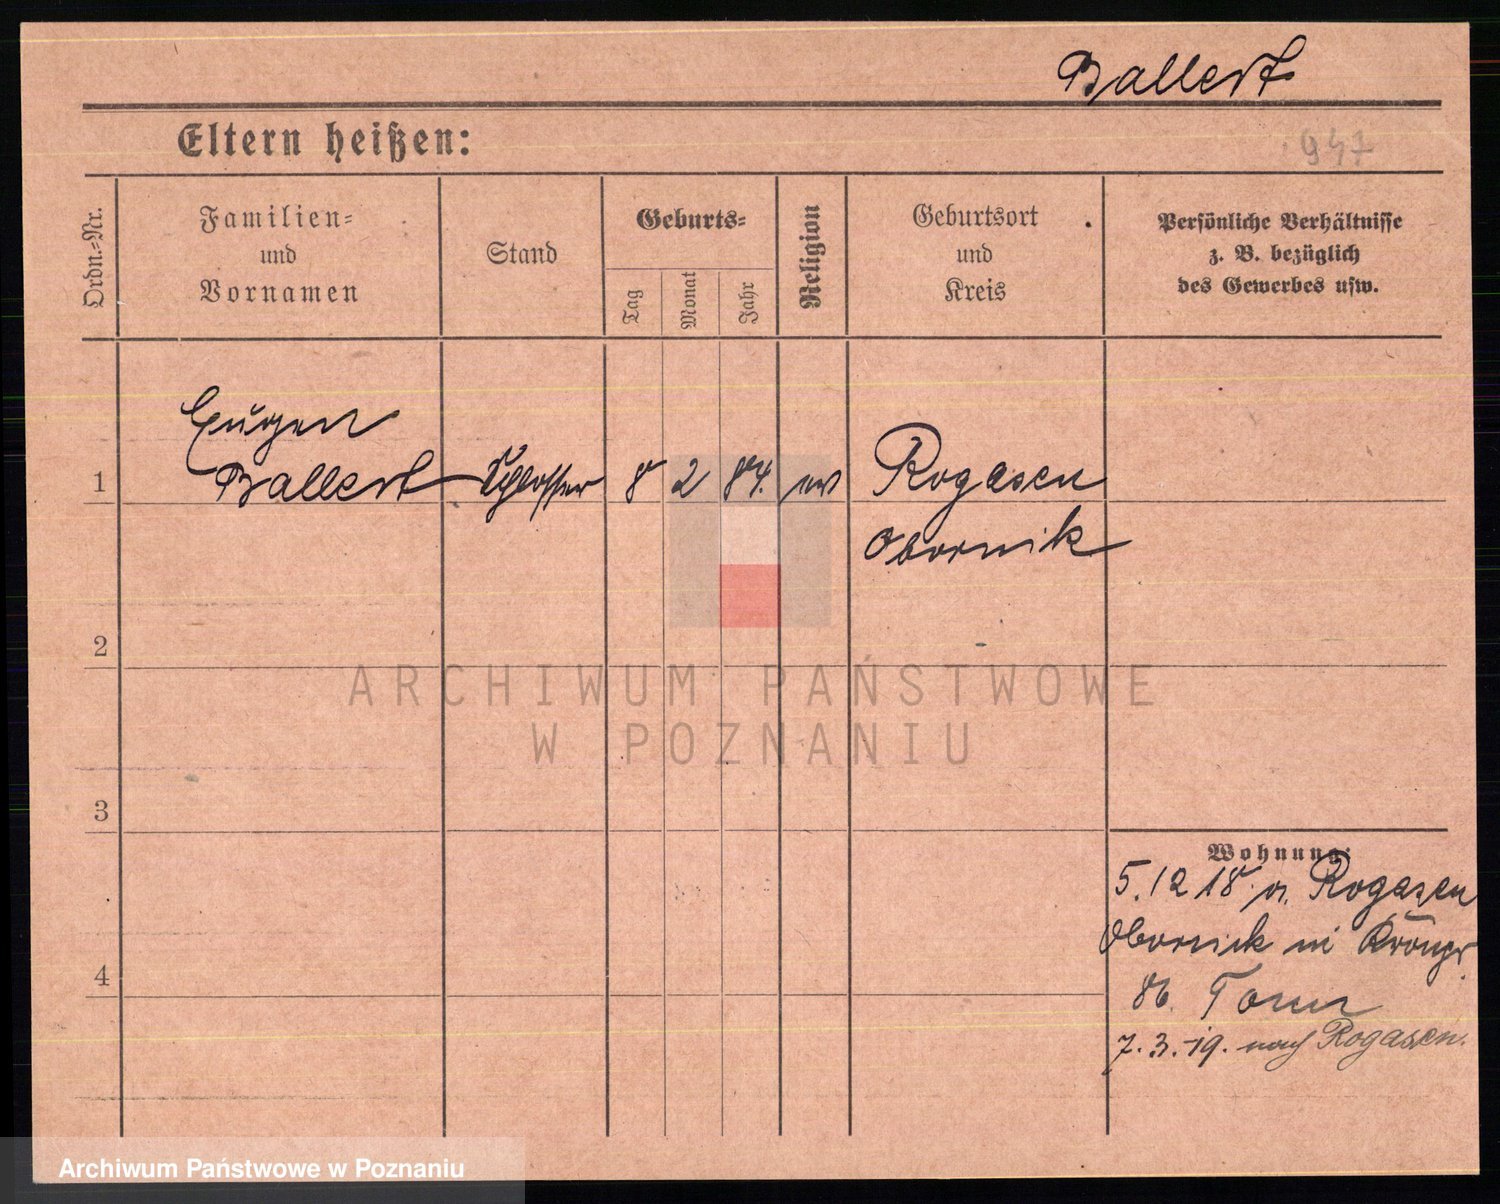 Ballert
Eltern heißen:
947
Ordn.-Nr.
Familien-
und
Vornamen
Stand
Geburts-
Tag
Monat
Jahr
Religion
Geburtsort
und
Kreis
Persönliche Verhältnisse
z. B. bezüglich
des Gewerbes usw.
Eugen
1 Ballert Schlosser 8 2 84. ev Rogasen
Obornik
2
ARCHIWUM PAŃSTWOWE
W POZNANIU
3
Wohnung:
5.12 18. v. Rogasen
Obornik
4
86.
7.3.-19. nach Rogasen.
Archiwum Państwowe w Poznaniu